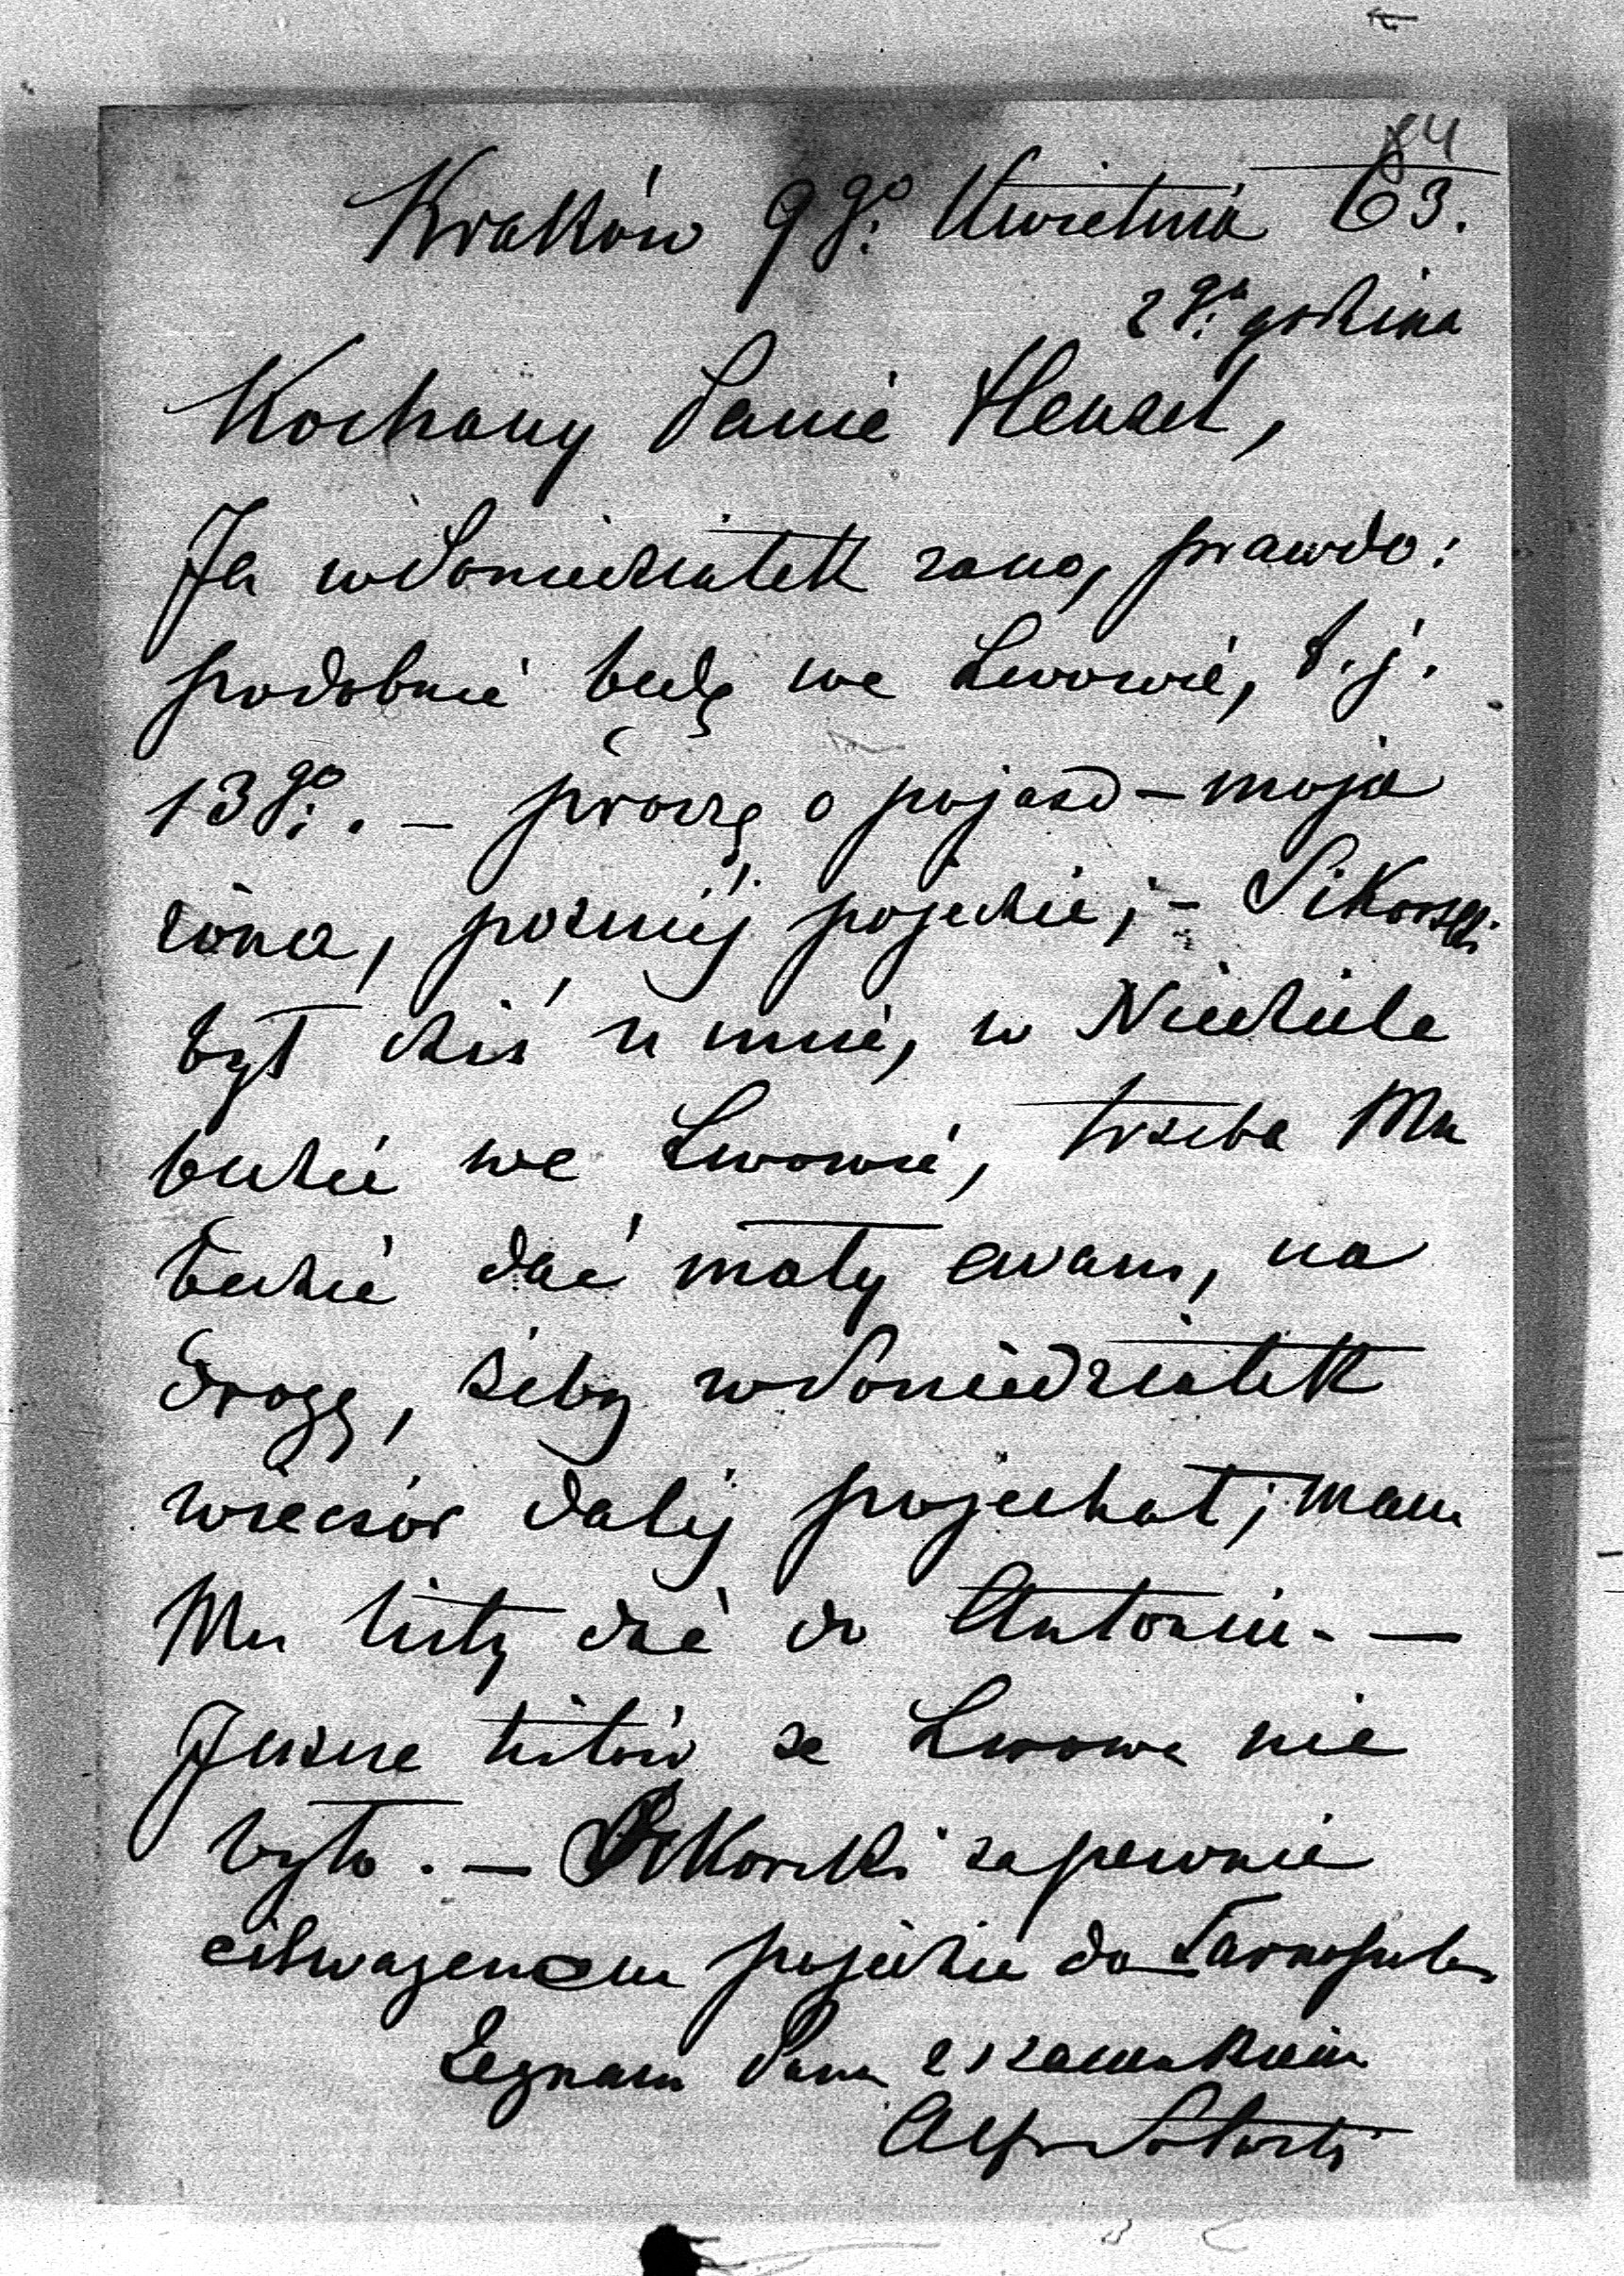 84
Kraków 9go. Kwietnia 63.
2ga. godzina
Kochany Panie Hensel,
Ja w Poniedziałek rano, prawdo:
podobnie będę we Lwowie, t.j.
13go. – proszę o pojazd – moja
żona, pozniéj pojedzie; – Sikorski
był dziś u mnie, w Niedziele
bedzie we Lwowie, trzeba Mu
bedzie dać mały avans, na
drogę, żeby w Poniedziałek
wieczór daléj pojechał; mam
Mu listy dać do Antonin. —
Jeszcze listów ze Lwowa nie
było. — Sikorski zapewnie
eilwagenem pojedzie do Tarnopola
Żegnam Pana z szacunkiem
Alfr Potocki